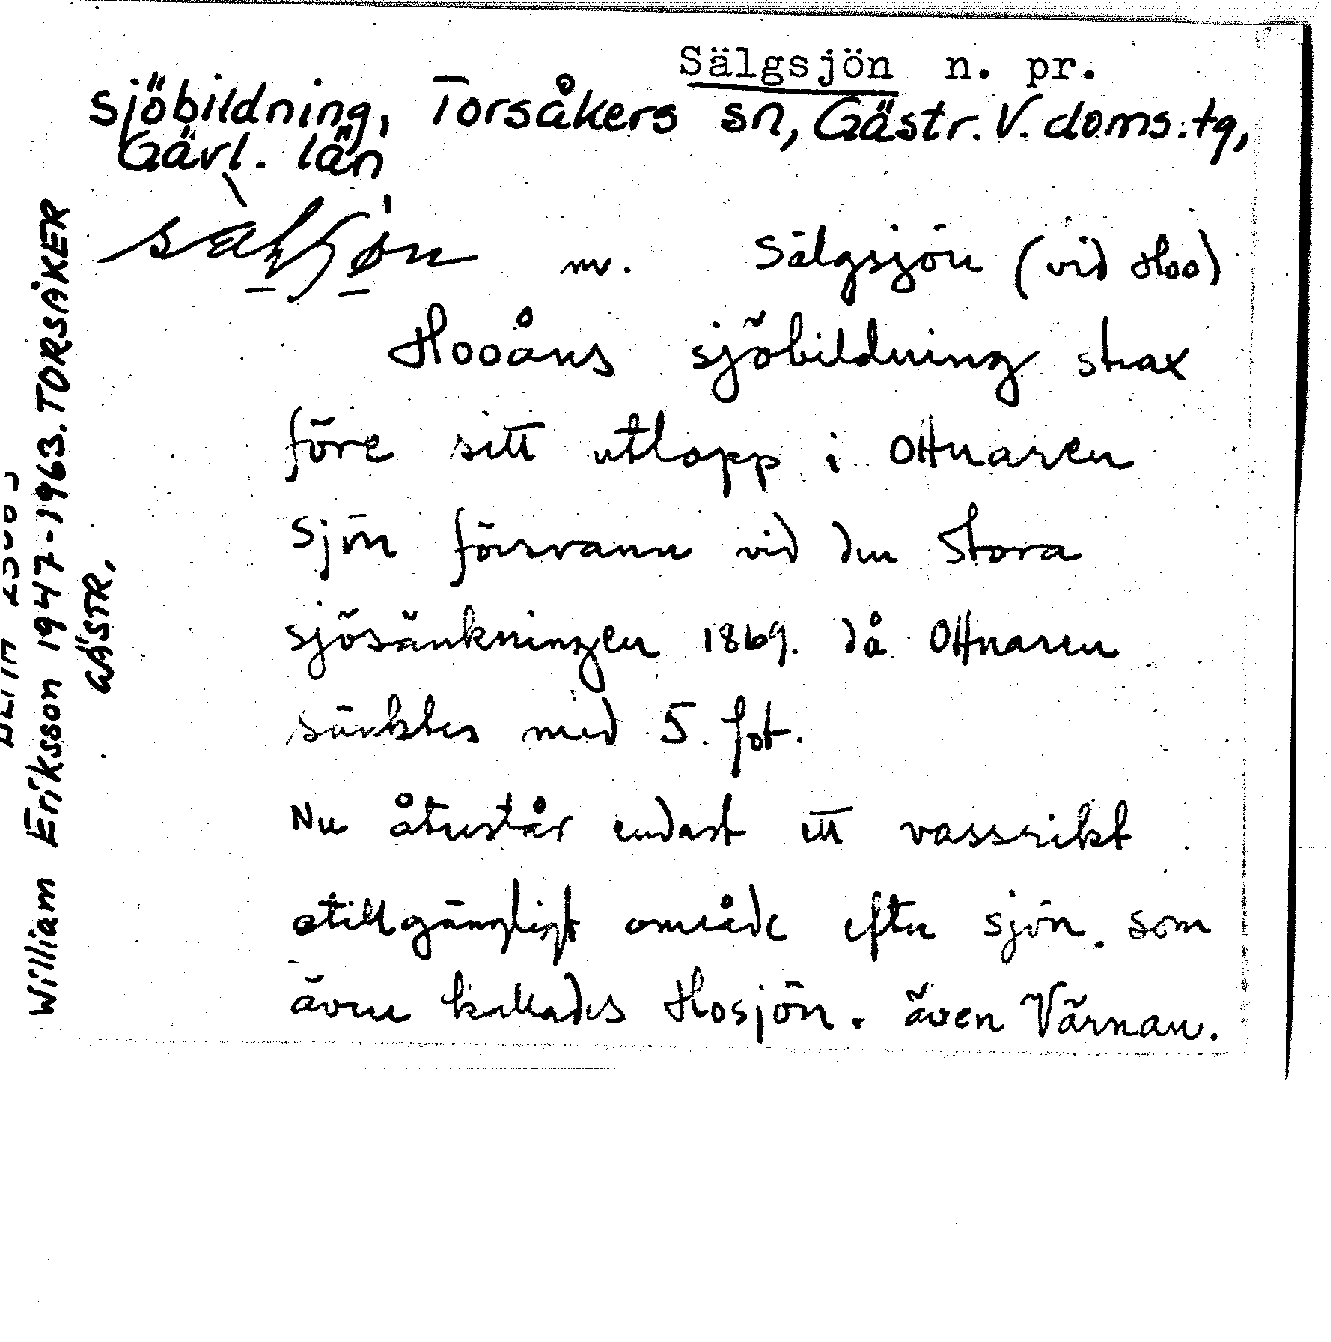 Sälgsjön n. pr.
Sjöbildning, Torsåkers sn, Gästr. V. doms.tg,
Gävl. län
nv. Sälgsjön (vid Hoo)
Hooåns sjöbildning strax
före sitt utlopp i Ottnaren
Sjön försvann vid den Stora
sjösänkningen 1869. då Ottnaren
sänktes med 5. fot.
Nu återstår endast ett vassrikt
otillgängligt område efter sjön. som
även kallades Hosjön. även Värnan.
William Eriksson 1947-1963. TORSÅKER
GÄSTR.